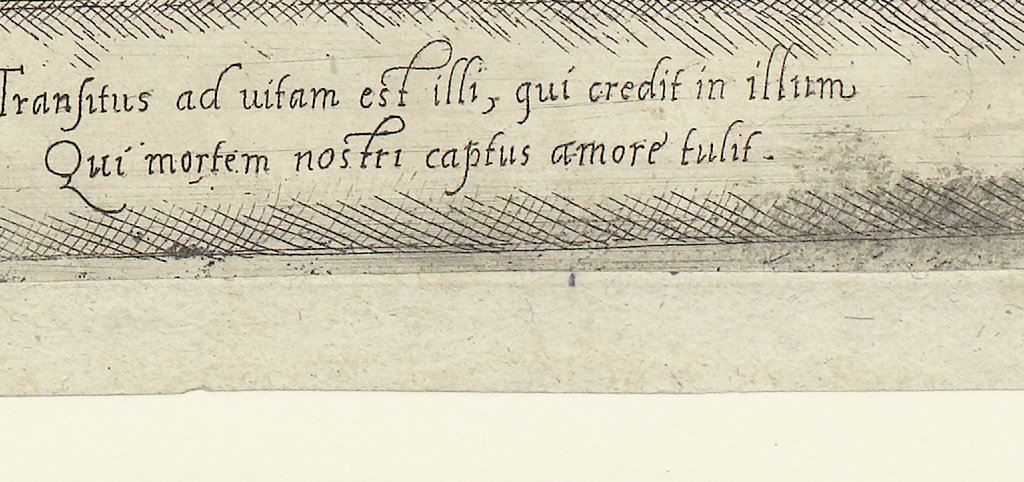 Tranſitus ad uitam est illi, qui credit in illum
Qui mortem nostri captus amore tulit.